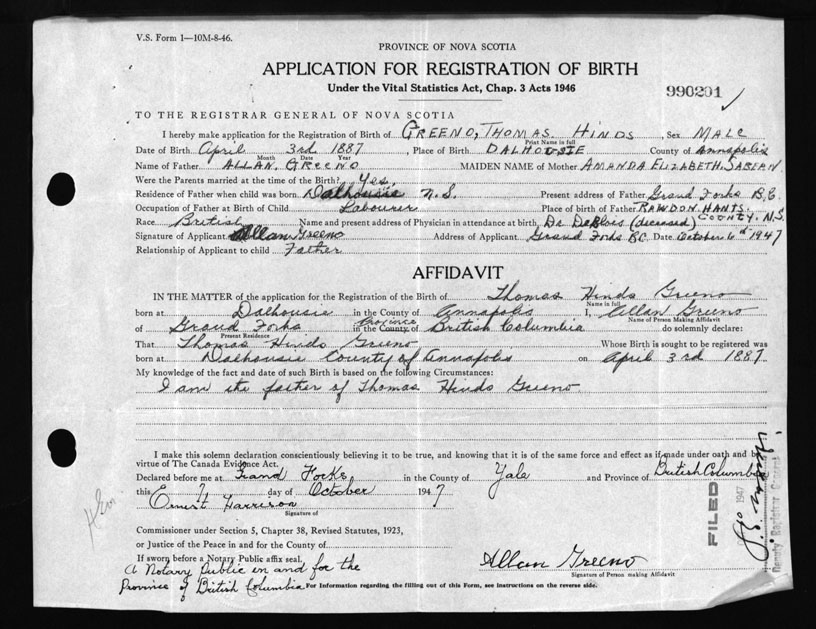 V.S. Form 1—10M-8-46.
PROVINCE OF NOVA SCOTIA
APPLICATION FOR REGISTRATION OF BIRTH
Under the Vital Statistics Act, Chap. 3 Acts 1946
990201 ✓
TO THE REGISTRAR GENERAL OF NOVA SCOTIA
I hereby make application for the Registration of Birth of GREENO, THOMAS HINDS, Sex MALE
Print Name in full
Date of Birth April 3rd 1887, Place of Birth DALHOUSIE County of Annapolis
Month Date Year
Name of Father ALLAN GREENO MAIDEN NAME of Mother AMANDA ELIZABETH SABEAN
Were the Parents married at the time of the Birth? Yes.
Residence of Father when child was born Dalhousie N.S. Present address of Father Grand Forks B.C.
Occupation of Father at Birth of Child Labourer Place of birth of Father RAWDON HANTS
COUNTY. N.S.
Race British Name and present address of Physician in attendance at birth, Dr DeBlois (deceased)
Signature of Applicant Allan Greeno Address of Applicant Grand Forks BC. Date October 6th 1947
Relationship of Applicant to child Father
AFFIDAVIT
IN THE MATTER of the application for the Registration of the Birth of Thomas Hinds Greeno
Name in full
born at Dalhousie in the County of Annapolis I, Allan Greeno
Name of Person Making Affidavit
of Grand Forks in the County of Province British Columbia do solemnly declare:
Present Residence
That Thomas Hinds Greeno Whose Birth is sought to be registered was
born at Dalhousie County of Annapolis on April 3rd 1887
My knowledge of the fact and date of such Birth is based on the following Circumstances:
I am the father of Thomas Hinds Greeno.
I make this solemn declaration conscientiously believing it to be true, and knowing that it is of the same force and effect as if made under oath and by
virtue of The Canada Evidence Act.
Declared before me at Grand Forks in the County of Yale and Province of British Columbia
this 7 day of October 1947
Ernest Harrison
Signature of
Commissioner under Section 5, Chapter 38, Revised Statutes, 1923,
or Justice of the Peace in and for the County of
If sworn before a Notary Public affix seal.
A Notary Public in and for the
Province of British Columbia
Allan Greeno
Signature of Person making Affidavit
For Information regarding the filling out of this Form, see instructions on the reverse side.
FILED
1947
Deputy Registrar General